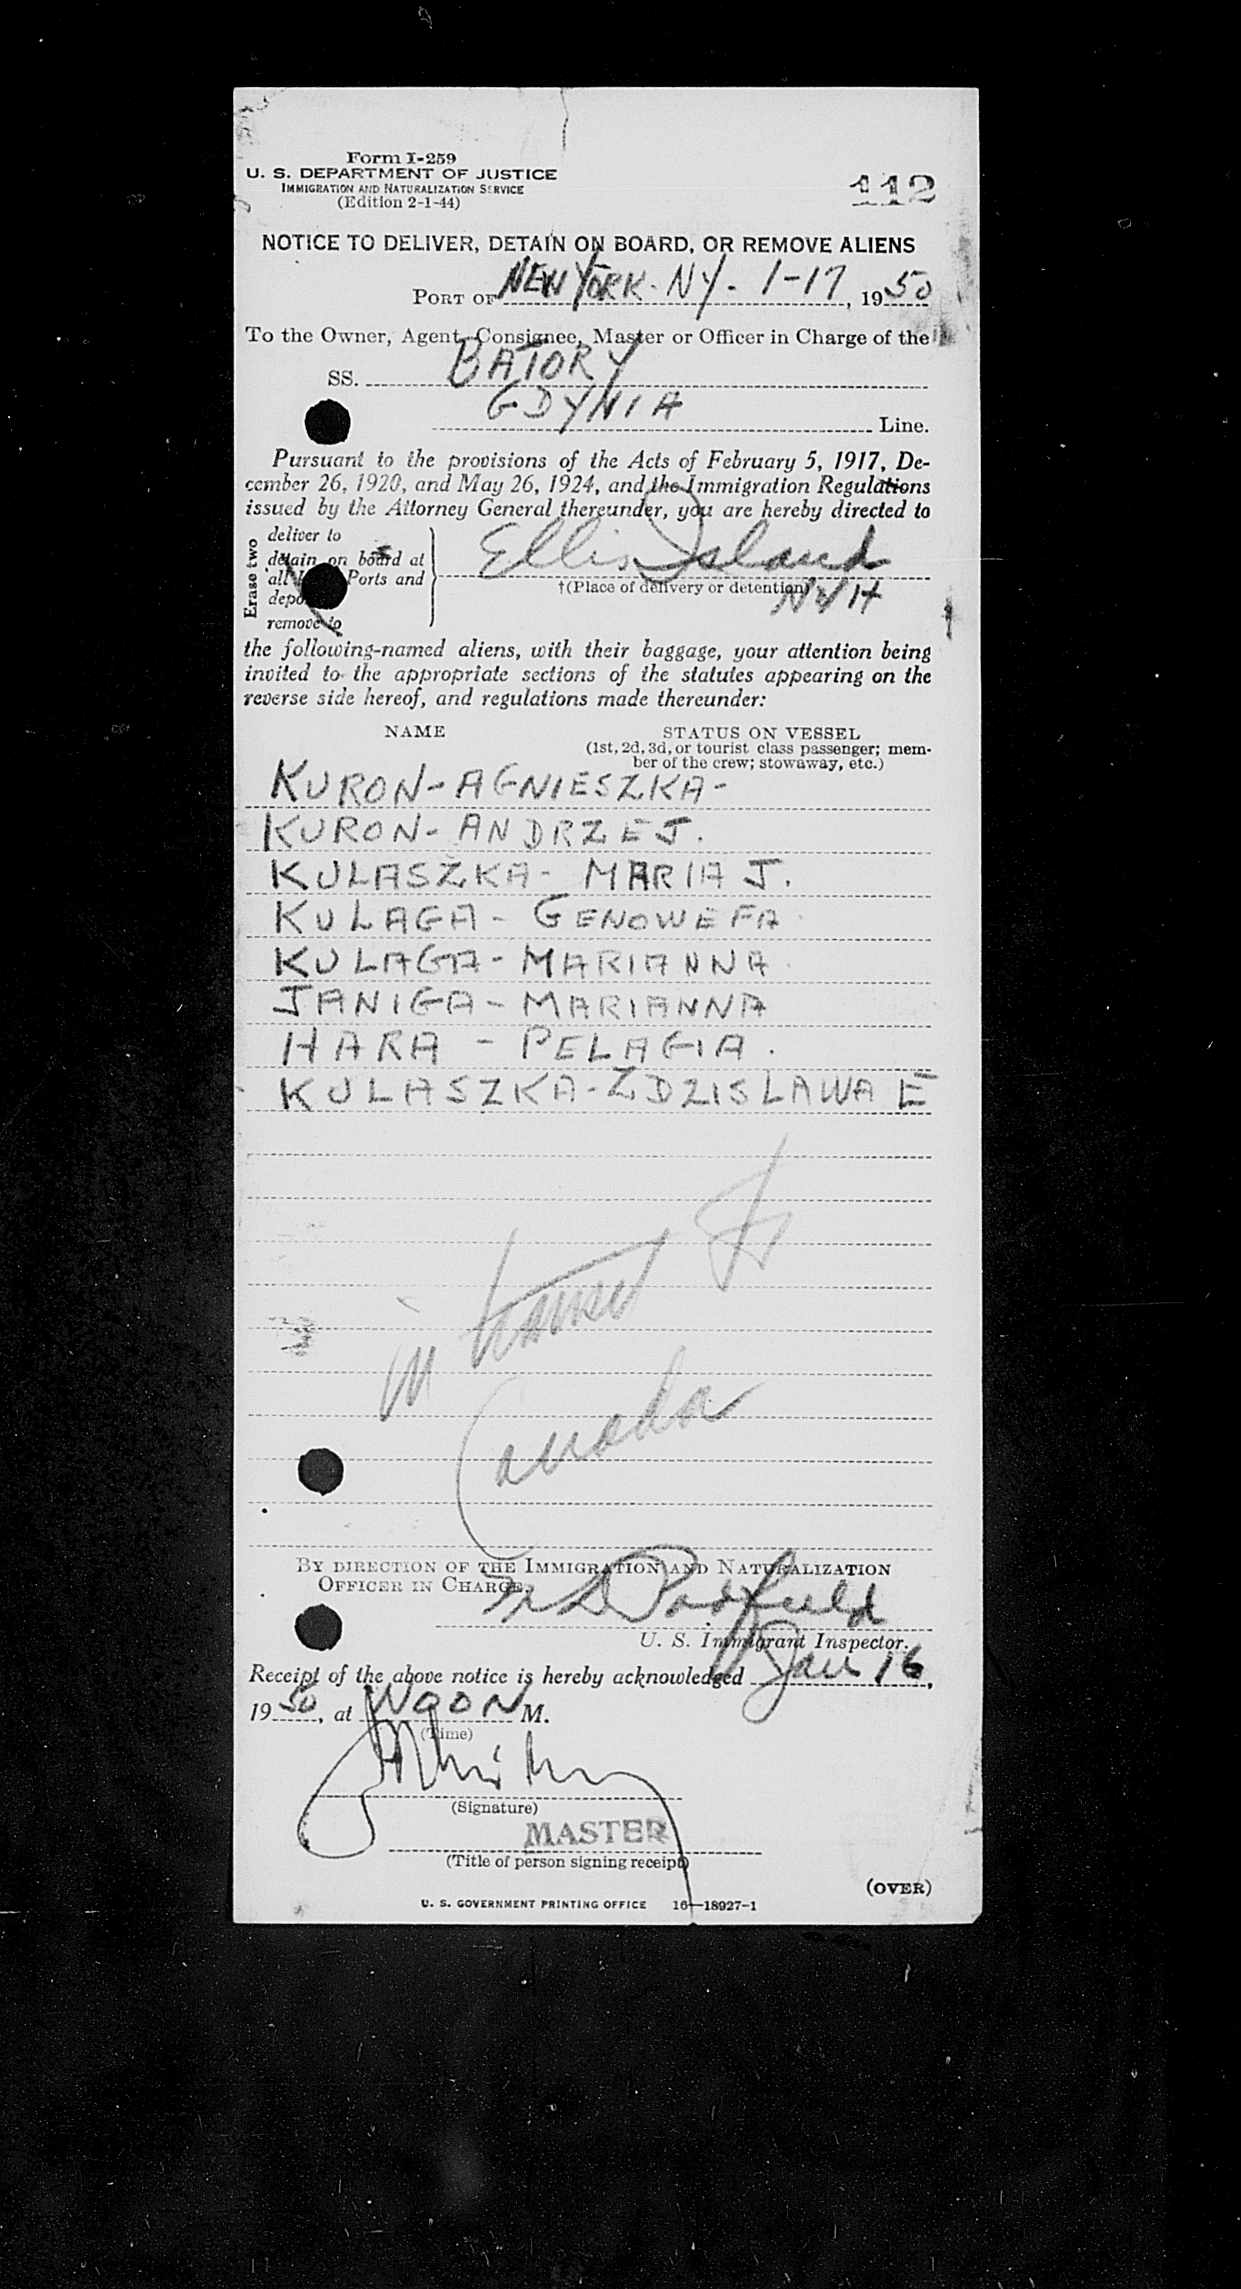 Form I-259
U. S. DEPARTMENT OF JUSTICE
IMMIGRATION AND NATURALIZATION SERVICE
(Edition 2-1-44)
112
NOTICE TO DELIVER, DETAIN ON BOARD, OR REMOVE ALIENS
PORT OF NEW YORK. NY. 1-17, 1950
To the Owner, Agent, Consignee, Master or Officer in Charge of the
SS. BATORY
GDYNIA Line.
Pursuant to the provisions of the Acts of February 5, 1917, De-
cember 26, 1920, and May 26, 1924, and the Immigration Regulations
issued by the Attorney General thereunder, you are hereby directed to
Erase two
deliver to
detain on board at
all Ports and
remove to
Ellis Island
†(Place of delivery or detention)
NYH
the following-named aliens, with their baggage, your attention being
invited to the appropriate sections of the statutes appearing on the
reverse side hereof, and regulations made thereunder:
NAME STATUS ON VESSEL
(1st, 2d, 3d, or tourist class passenger; mem-
ber of the crew; stowaway, etc.)
KURON-AGNIESZKA-
KURON-ANDRZEJ.
KULASZKA- MARIA J.
KULAGA- GENOWEFA
KULAGA-MARIANNA
JANIGA-MARIANNA
HARA - PELAGIA.
KULASZKA-ZDZISLAWA E
in transit to
Canada
BY DIRECTION OF THE IMMIGRATION AND NATURALIZATION
OFFICER IN CHARGE,
Padfield
U. S. Immigrant Inspector.
Receipt of the above notice is hereby acknowledged Jan 16,
1950, at NOON M.
(Time)
(Signature)
MASTER
(Title of person signing receipt)
(OVER)
U. S. GOVERNMENT PRINTING OFFICE 16—18927-1